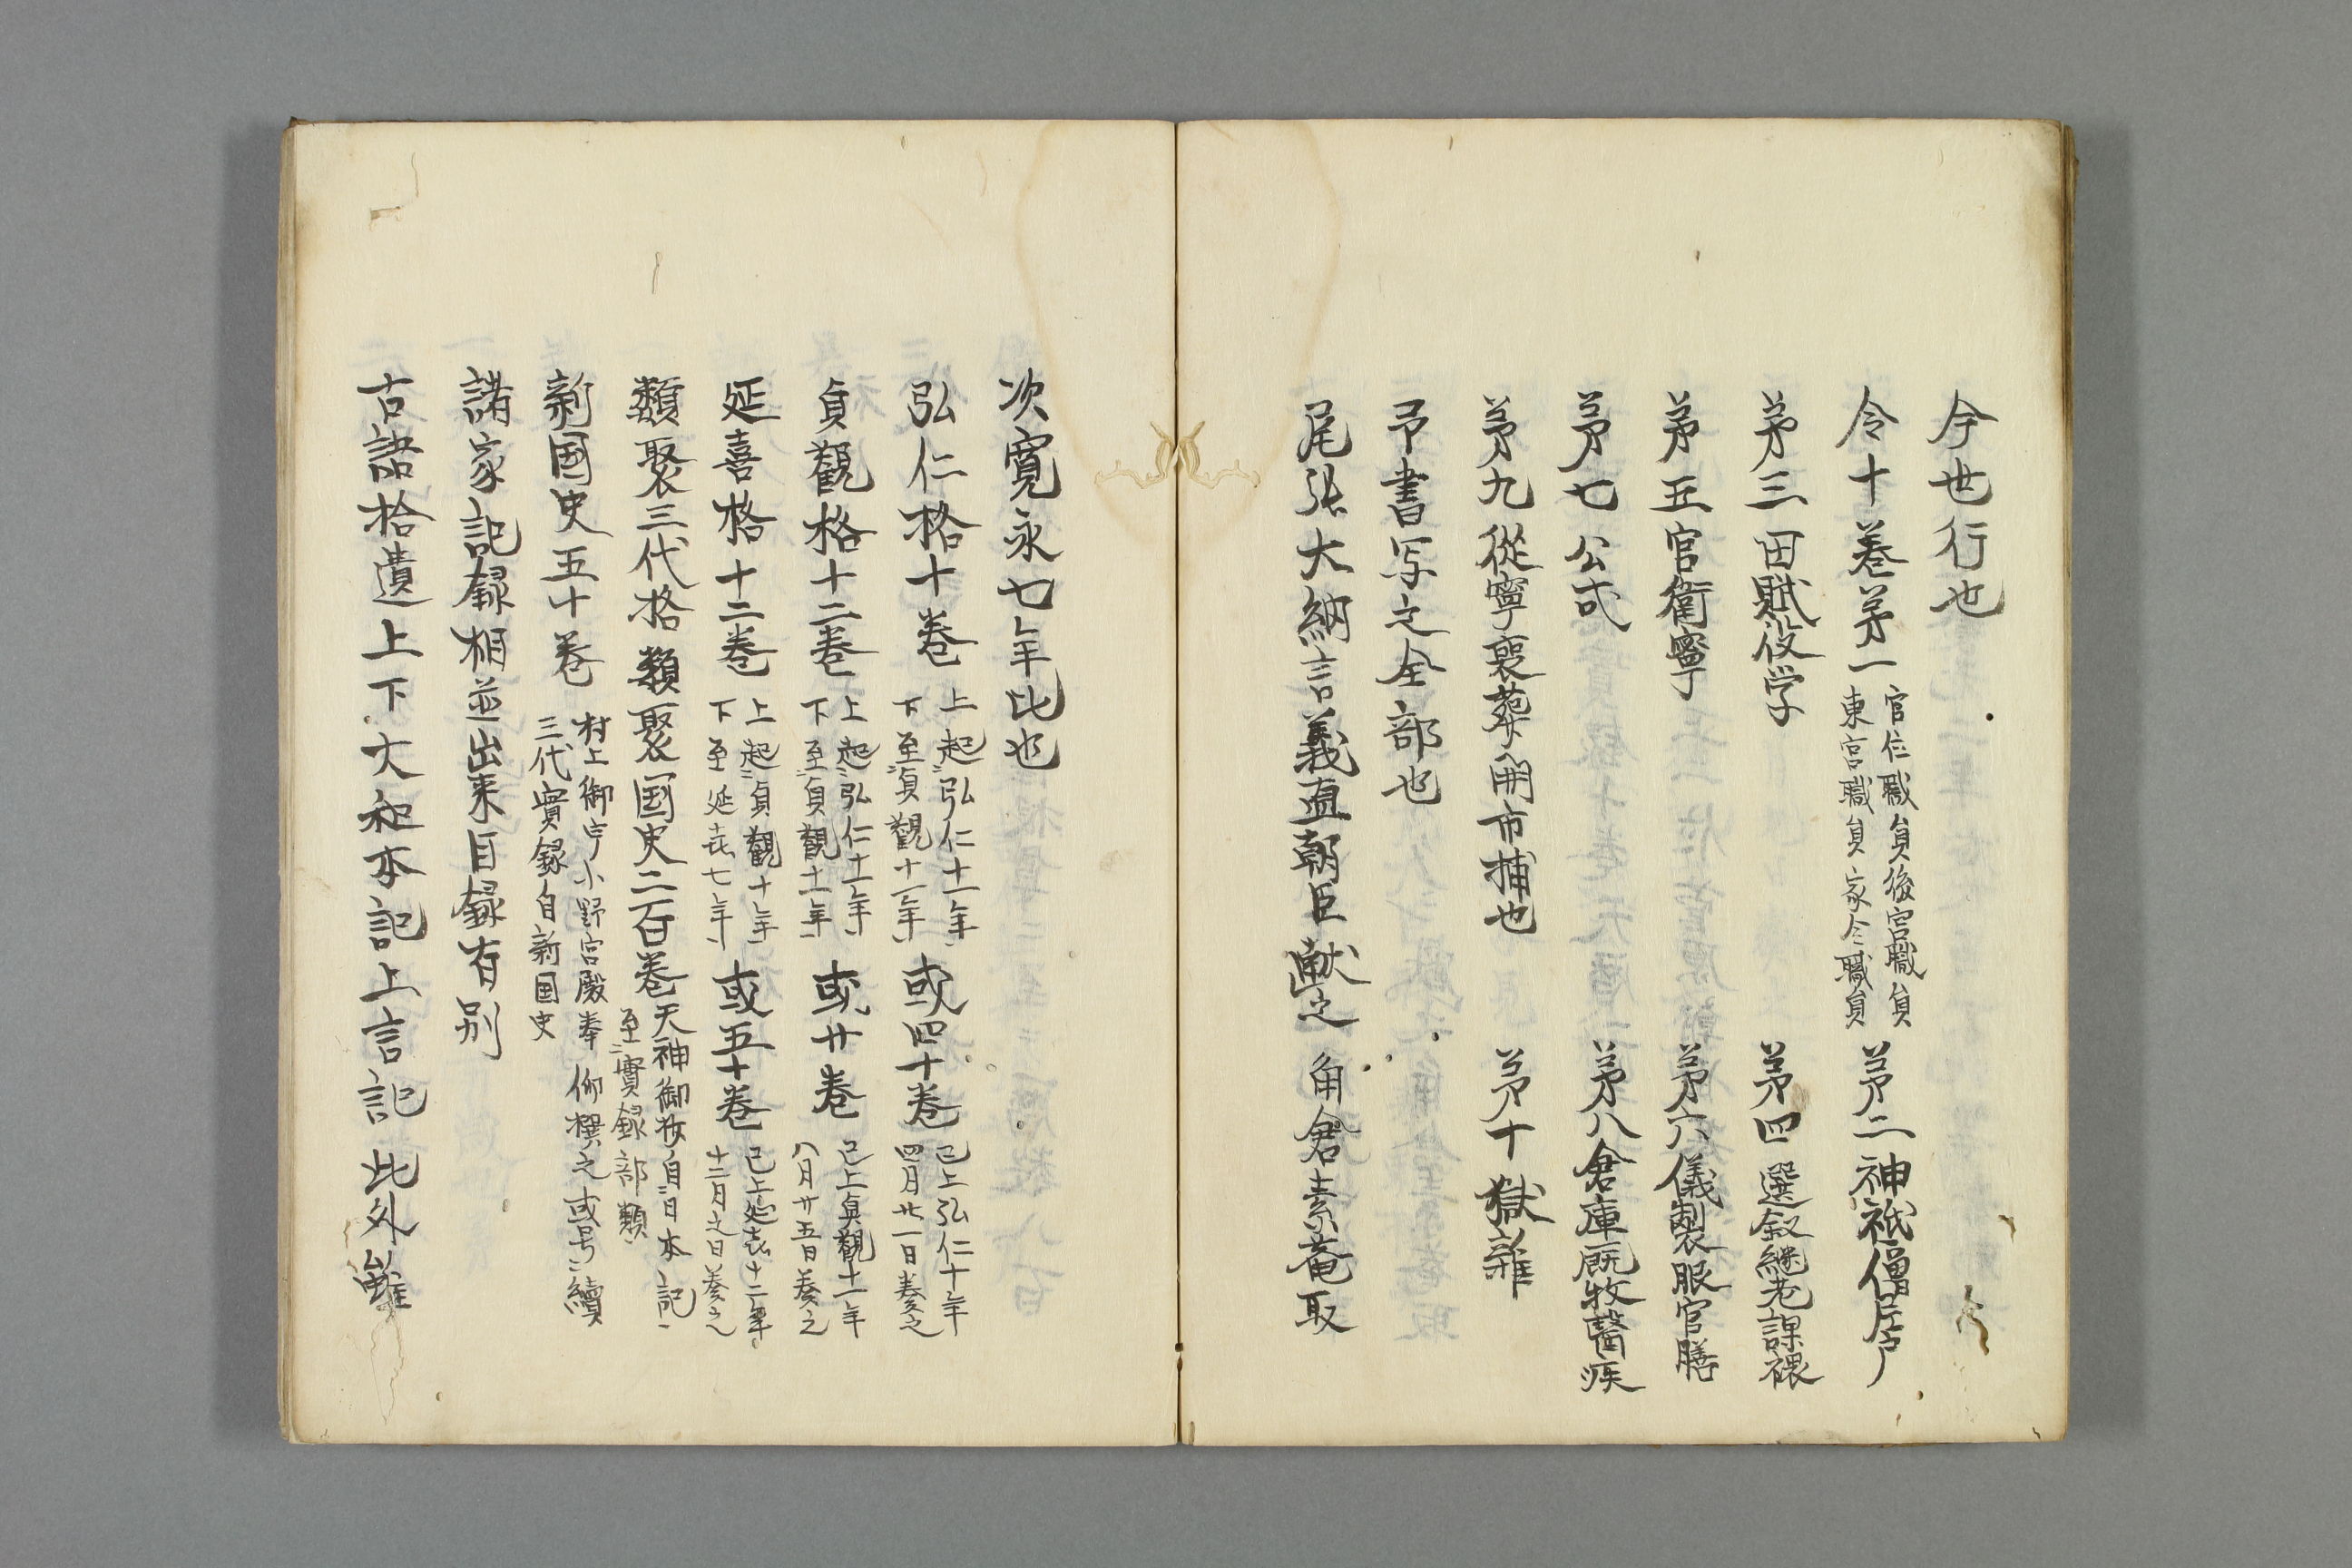 今世行也
令十巻苐一官位職員後宮職員東宮職員家令職員 苐二神祇僧尼戸
苐三田賦役学 苐四選叙継老課禄
苐五官衛寧 苐六儀製服官膳
苐七公式 苐八倉庫厩牧醫疾
苐九從寧喪葬開市捕也 苐十獄雑
予書写之全部也
尾張大納言義直朝臣献之 角倉素菴取
次寛永七年比也
弘仁格十巻上起弘仁十一年下至貞觀十一年或四十巻已上弘仁十年四月廿一日奏之
貞觀格十二巻上起弘仁十一年下至貞觀十一年或廿巻已上貞觀十一年八月廿五日奏之
延喜格十二巻上起貞觀十年下至延㐂七年或五十巻已上延㐂十二年十二月之日奏之
類聚三代格類聚国史二百巻天神御次自日本記至實録部類
新国史五十巻村上御宇小野宮殿奉仰撰之或号續三代實録自新国史
諸家記録相並出来目録有別
古語拾遺上下大和本記上言記此外雖